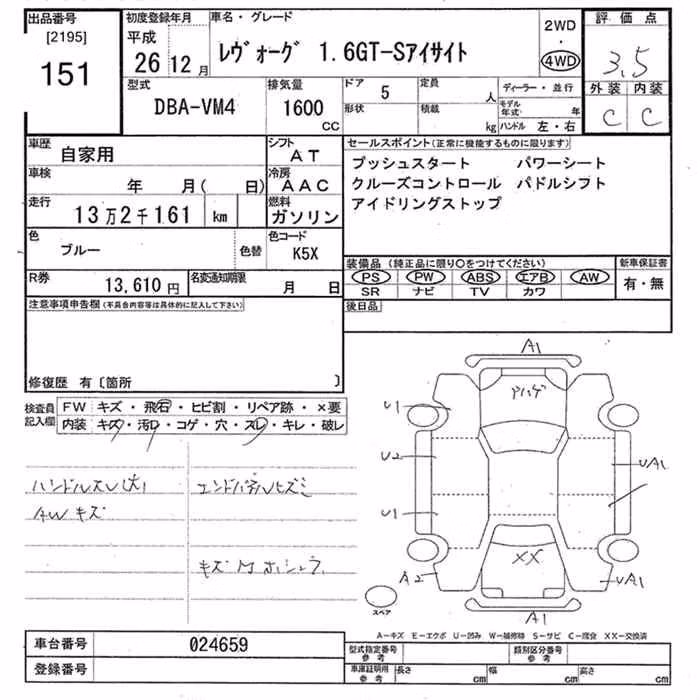 出品番号 初度登録年月 車名・グレード 2WD 評価点
[2195] 平成 ・
151 26 12月 レヴォーグ 1.6GT-Sアイサイト 4WD 3.5
外装 内装
型式 排気量 ドア 5 定員 人 ディーラー・並行 C C
DBA-VM4 1600 cc 形状 積載 kg モデル年式 年
ハンドル 左・右
車歴 自家用 シフト AT セールスポイント(正常に機能するものに限ります)
車検 年 月( 日) 冷房 AAC プッシュスタート パワーシート
走行 13万2千161 km 燃料 ガソリン クルーズコントロール パドルシフト
アイドリングストップ
色 ブルー 色替 色コード K5X
装備品(純正品に限り○をつけてください) 新車保証書
R券 13,610円 名変通知期限 月 日 PS PW ABS エアB AW 有・無
SR ナビ TV カワ
注意事項申告欄(不具合内容等は具体的に記入して下さい) 後日品
修復歴 有〔箇所 〕
検査員記入欄 FW キズ・飛石・ヒビ割・リペア跡・×要
内装 キズ・汚レ・コゲ・穴・スレ・キレ・破レ
ハンドルスレ(大) エンドパネルヒズミ
AWキズ
A1
U1
U2 UA1
U1
XX
A2 UA1
スペア
A1
A－キズ E－エクボ U－凹み W－補修跡 S－サビ C－腐食 XX－交換済
車台番号 024659 型式指定番号 参考 類別区分番号 参考
登録番号 車庫証明用 参考 長さ cm 幅 cm 高さ cm